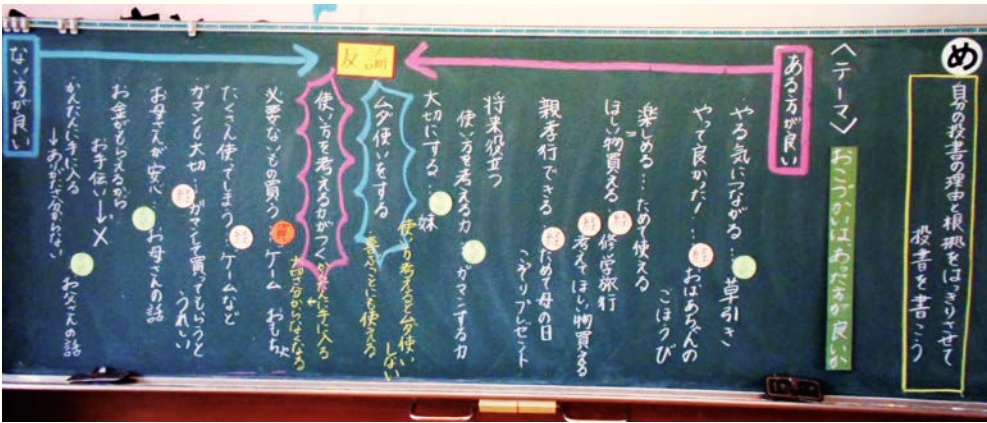 め
自分の投書の理由と根拠をはっきりさせて
投書を書こう
〈テーマ〉
おこづかいは、あった方が良いか
ある方が良い
やる気につながる…草引き
やって良かった!
おばあちゃんの
ごほうび
楽しめる…ためて使える
ほしい物買える
修学旅行
考えてほしい物買える
親孝行できる
ためて母の日
こっそりプレゼント
将来役立つ
使い方を考える力
ガマンする力
大切にする…妹
反論
ムダ使いをする
使い方考えるとムダ使い
しない
喜ぶことにも使える
使い方を考える力がつく
かんたんに手に入る
大切さ分からなくなる
必要ないもの買う…ゲーム おもちゃ
たくさん使ってしまう
ゲームなど
ガマンも大切…ガマンして買ってもらうと
うれしい
お母さんが安心
お母さんの話
お金がもらえるから
お手伝い→✕
かんたんに手に入る
→ありがたさ分からない
お父さんの話
ない方が良い